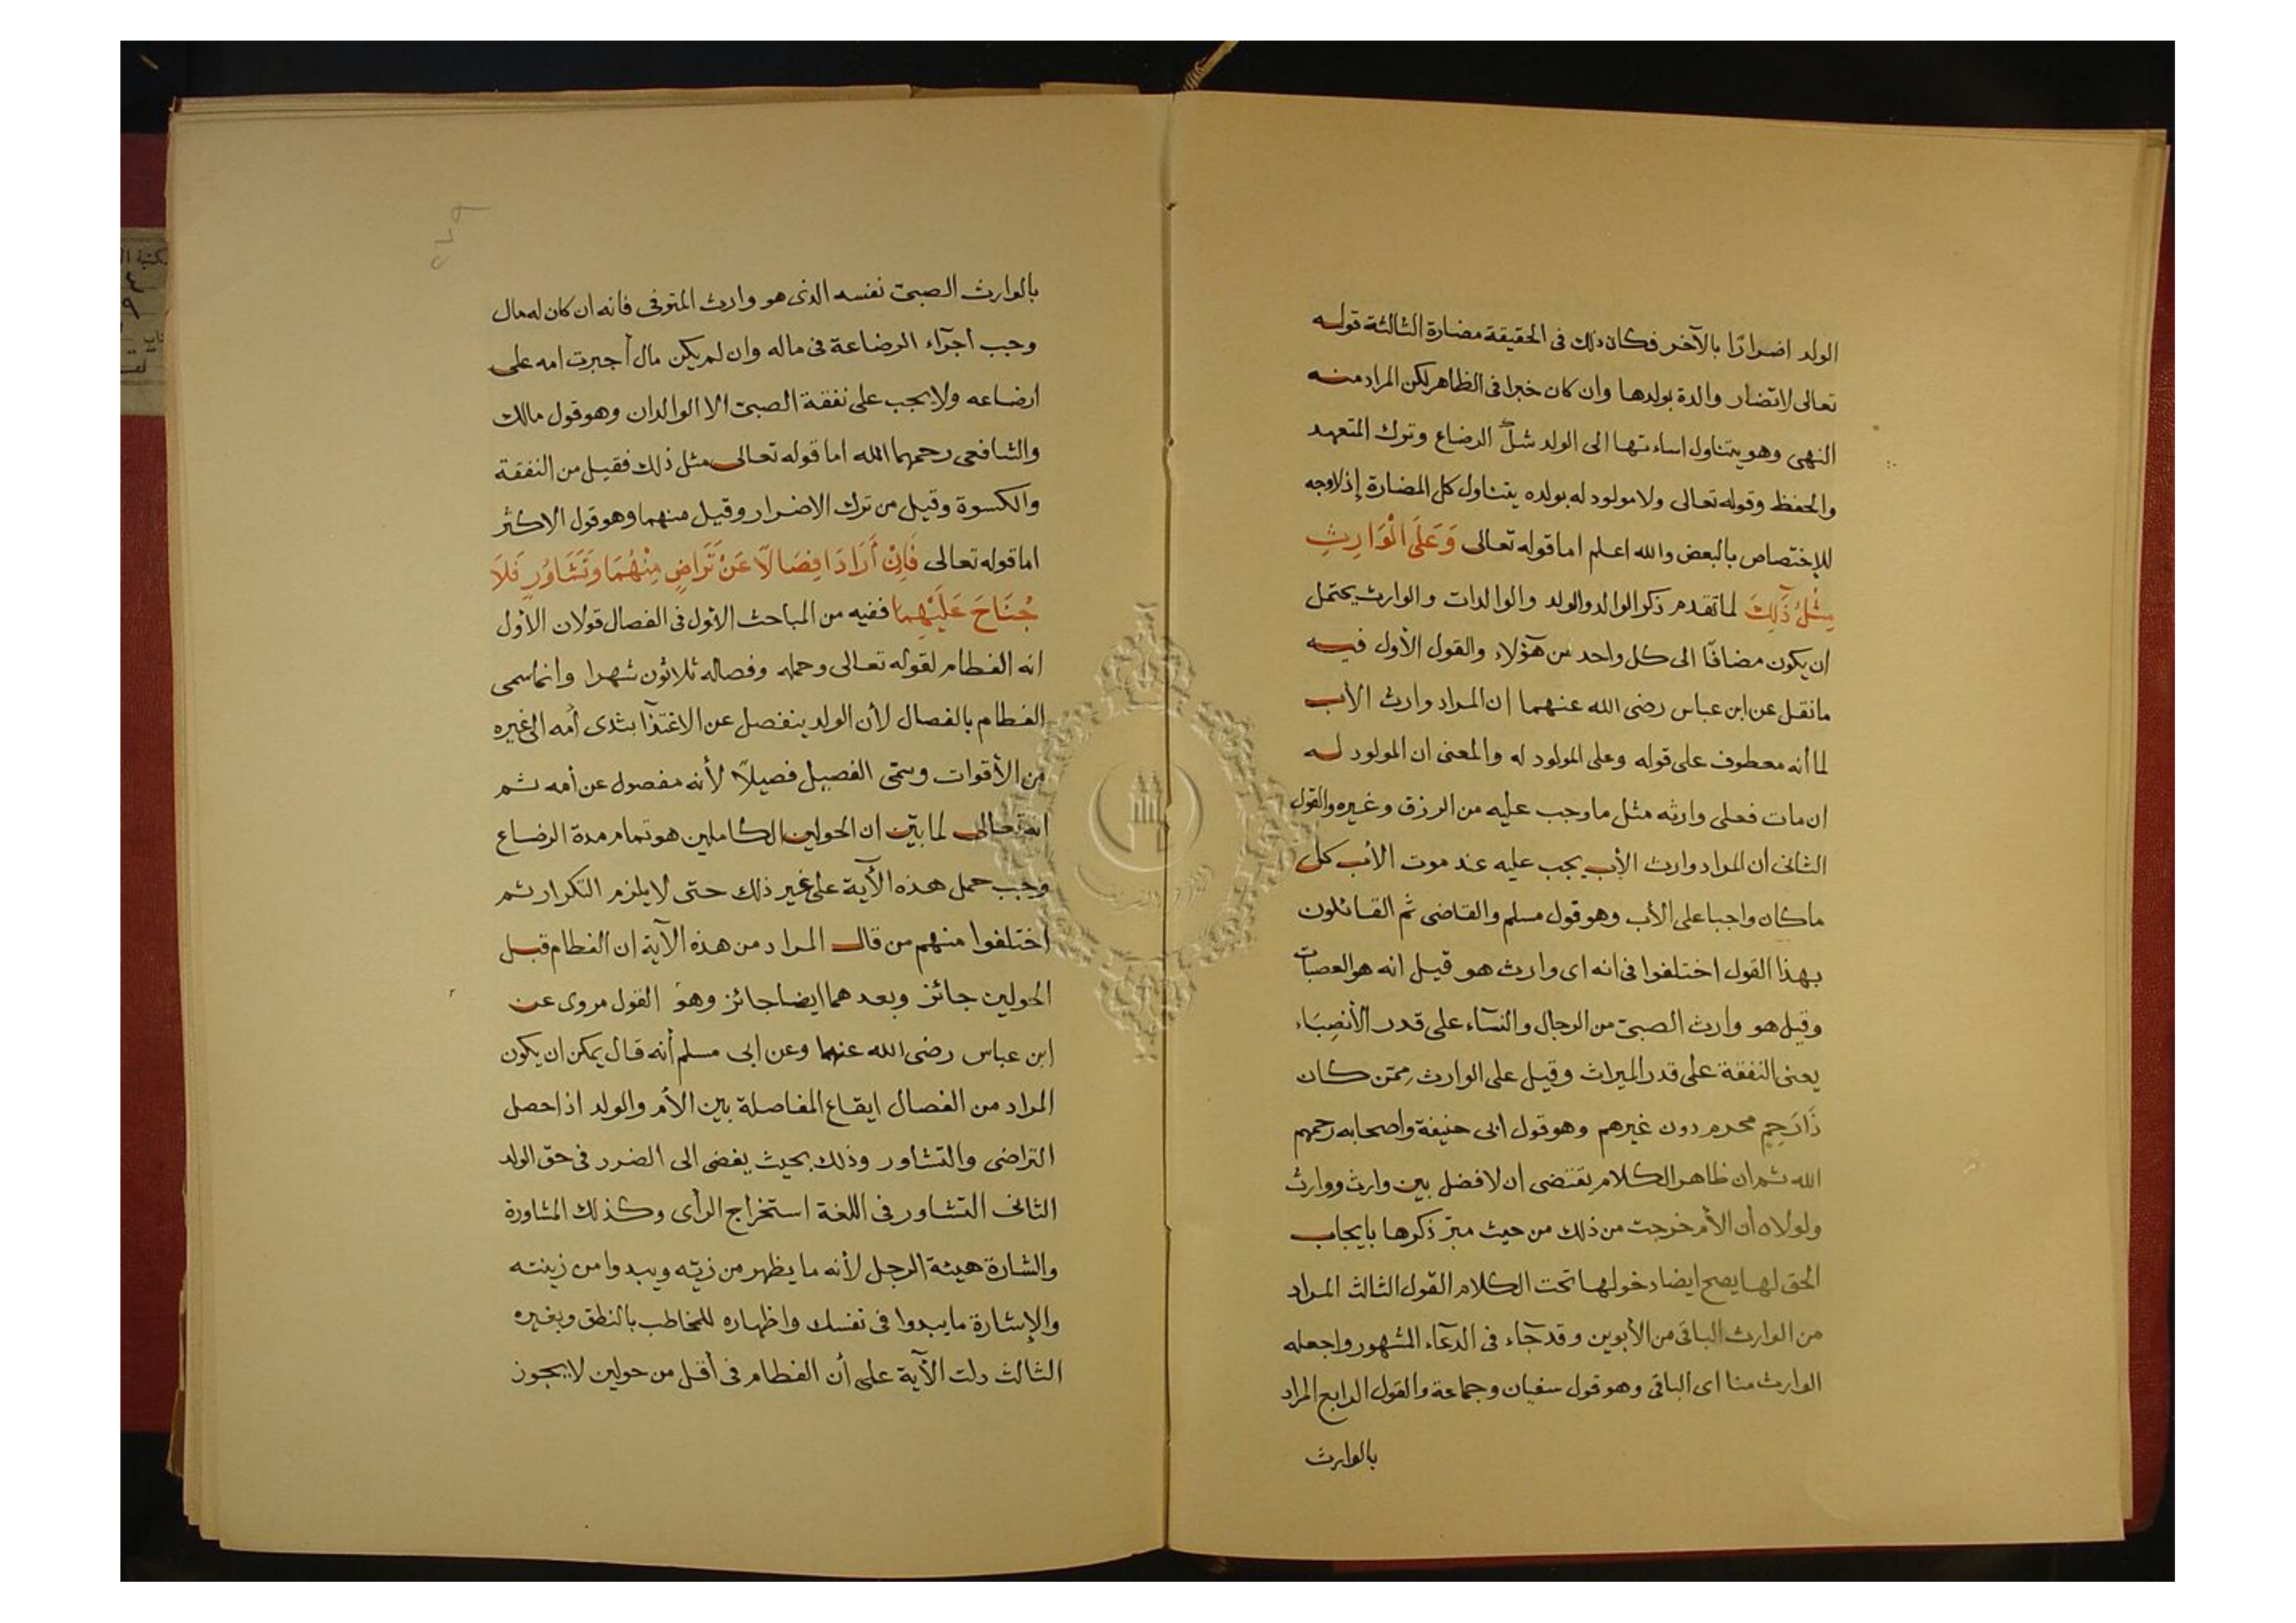 الولد اضرارًا بالآخر فكان ذلك فى الحقيقة مضارة الثالثة قوله
تعالى لاتضار والدة بولدها وان كان خبرا فى الظاهر لكن المراد منه
النهى وهو يتناول اساءتها الى الولد الرضاع وترك المتعهد
والحفظ وقوله تعالى ولا مولود له بولده يتناول كل المضارة إذ لاوجه
للإختصاص بالبعض والله اعلم اما قوله تعالى وَعَلَى الْوَارِثِ
مِثْلُ ذَٰلِكَ لما تقدم ذكر الوالد والولد والوالدات والوارث يحتمل
ان يكون مضافًا الى كل واحد من هؤلاء والقول الأول فيه
مانقل عن ابن عباس رضى الله عنهما ان المراد وارث الأب
لما أنه معطوف على قوله وعلى المولود له والمعنى ان المولود له
ان مات فعلى وارثه مثل ماوجب عليه من الرزق وغيره والقول
الثانى ان المراد وارث الأب يجب عليه عند موت الأب كل
ماكان واجبا على الأب وهو قول مسلم والقاضى ثم القائلون
بهذا القول اختلفوا فى انه اى وارث هو قيل انه هو العصبات
وقيل هو وارث الصبىّ من الرجال والنسآء على قدر الأنصِبَاء
يعنى النفقة على قدر الميراث وقيل على الوارث ممّن كان
ذَا رَحِمٍ محرم دون غيرهم وهو قول ابى حنيفة واصحابه رحمهم
الله ثم ان ظاهر الكلام يقتضى ان لا فضل بين وارث ووارث
ولولاه أن الأم خرجت من ذلك من حيث مرّ ذكرها بايجاب
الحق لها يصح ايضا دخولها تحت الكلام القول الثالث المراد
من الوارث الباقى من الأبوين وقد جآء فى الدعآء المشهور واجعله
الوارث منا اى الباقى وهو قول سفيان وجماعة والقول الرابع المراد
بالوارث
بالوارث الصبىّ نفسه الذى هو وارث المتوفى فانه ان كان له مال
وجب أجرآء الرضاعة فى ماله وان لم يكن مال أجبرت امه على
ارضاعه ولا يجب على نفقة الصبىّ الا الوالدان وهو قول مالك
والشافعى رحمهما الله اما قوله تعالى مثل ذلك فقيل من النفقة
والكسوة وقيل من ترك الاضرار وقيل منهما وهو قول الاكثر
اما قوله تعالى فَإِنْ أَرَادَا فِصَالًا عَنْ تَرَاضٍ مِنْهُمَا وَتَشَاوُرٍ فَلَا
جُنَاحَ عَلَيْهِمَا ففيه من المباحث الأول فى الفصال قولان الأول
انه الفطام لقوله تعالى وحمله وفصاله ثلاثون شهرا وانما سمى
الفطام بالفصال لأن الولد ينفصل عن الاغتذآ بثدى أمه الى غيره
من الأقوات وسمّى الفصيل فصيلًا لأنه مفصول عن أمه ثم
انه تعالى لما بيّن ان الحولين الكاملين هو تمام مدة الرضاع
وجب حمل هذه الآية على غير ذلك حتى لا يلزم التكرار ثم
اختلفوا منهم من قال المراد من هذه الآية ان الفطام قبل
الحولين جائز وبعد هما ايضا جائز وهو القول مروى عن
ابن عباس رضى الله عنهما وعن ابى مسلم أنه قال يمكن ان يكون
المراد من الفصال ايقاع المفاصلة بين الأم والولد اذا حصل
التراضى والتشاور وذلك بحيث يفضى الى الضرر فى حق الولد
الثانى التشاور فى اللغة استخراج الرأى وكذلك المشاورة
والشارة هيئة الرجل لأنه ما يظهر من زيّه ويبدوا من زينته
والإشارة مايبدوا فى نفسك واظهاره للمخاطب بالنطق وبغيره
الثالث دلت الآية على أن الفطام فى أقل من حولين لا يجوز